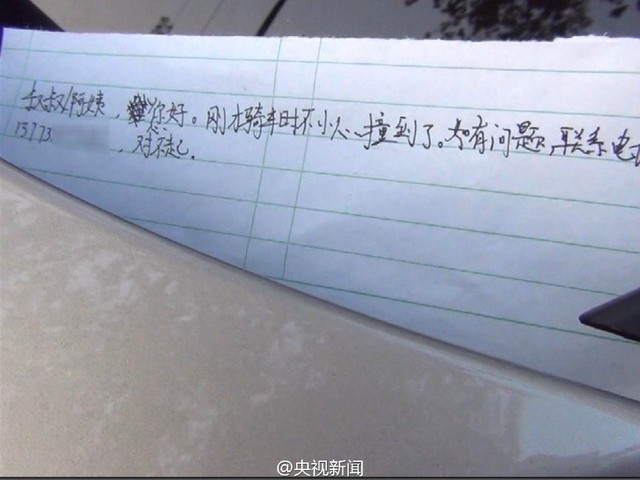 叔叔/阿姨，您好。刚才骑车时不小心撞到了。如有问题，联系电
13773 ，对不起.
@央视新闻